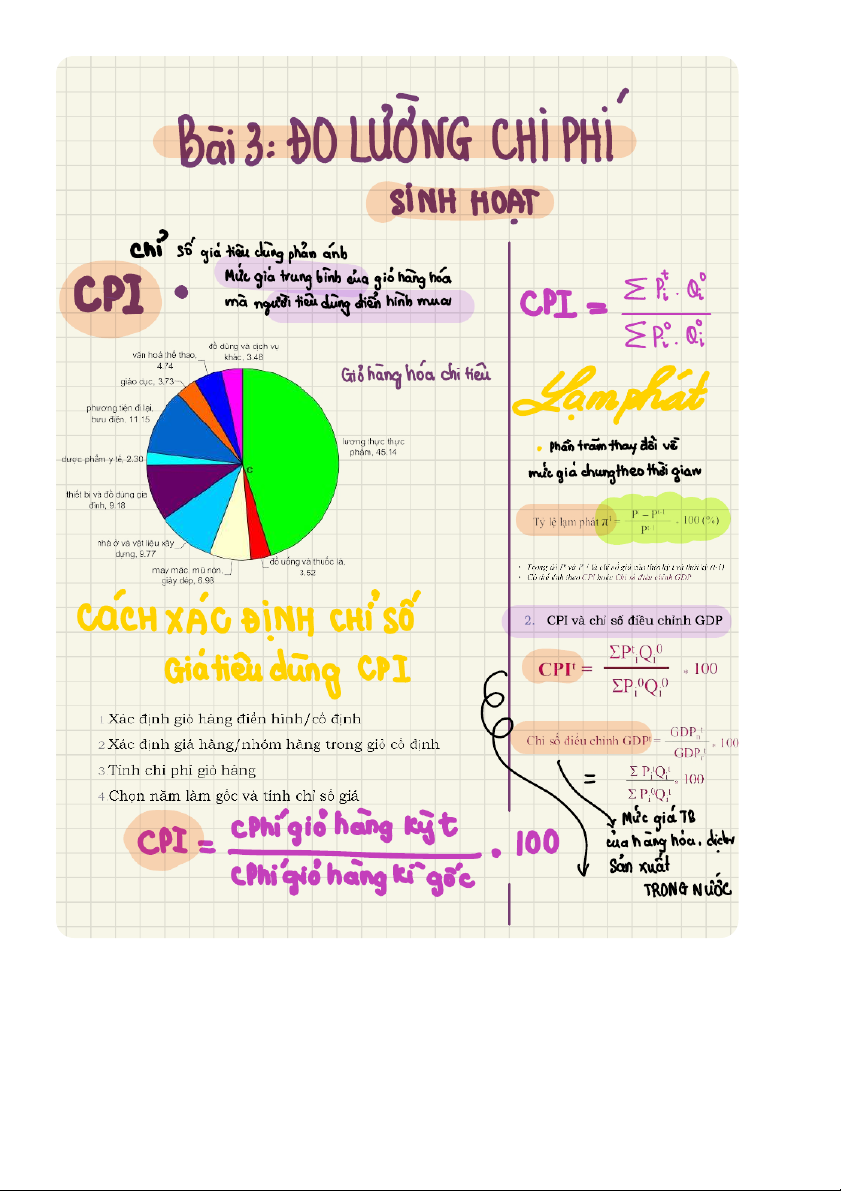 Bài 3: ĐO LƯỜNG CHI PHÍ
SINH HOẠT
Chỉ số giá tiêu dùng phản ánh
CPI • Mức giá trung bình của giỏ hàng hóa
mà người tiêu dùng điển hình mua
Giỏ hàng hóa chi tiêu
đồ dùng và dịch vụ
khác, 3.46
văn hoá thể thao,
4.74
giáo dục, 3.73
phương tiện đi lại,
bưu điện, 11.15
dược phẩm y tế, 2.30
thiết bị và đồ dùng gia
đình, 9.18
nhà ở và vật liệu xây
dựng, 9.77
may mặc, mũ nón,
giày dép, 6.98
đồ uống và thuốc lá,
3.52
lương thực thực
phẩm, 45.14
C
CÁCH XÁC ĐỊNH CHỈ SỐ
Giá tiêu dùng CPI
1 Xác định giỏ hàng điển hình/cố định
2 Xác định giá hàng/nhóm hàng trong giỏ cố định
3 Tính chi phí giỏ hàng
4 Chọn năm làm gốc và tính chỉ số giá
cPhí giỏ hàng kỳ t
CPI = . 100
cPhí giỏ hàng kì gốc
∑ Pᵢᵗ . Qᵢ⁰
CPI =
∑ Pᵢ⁰ . Qᵢ⁰
Lạm phát
• phần trăm thay đổi về
mức giá chung theo thời gian
Tỷ lệ lạm phát πᵗ = (Pᵗ – Pᵗ⁻¹) / Pᵗ⁻¹ * 100 (%)
• Trong đó Pᵗ và Pᵗ⁻¹ là chỉ số giá của thời kỳ t và thời kỳ (t-1)
• Có thể tính theo CPI hoặc Chỉ số điều chỉnh GDP
2. CPI và chỉ số điều chỉnh GDP
ΣPᵗᵢQᵢ⁰
CPIᵗ = * 100
ΣPᵢ⁰Qᵢ⁰
Chỉ số điều chỉnh GDPᵗ = GDPₙᵗ / GDPᵣᵗ * 100
= Σ PᵢᵗQᵢᵗ / Σ Pᵢ⁰Qᵢᵗ * 100
Mức giá TB
của hàng hóa, dịch
Sản xuất
TRONG NƯỚC